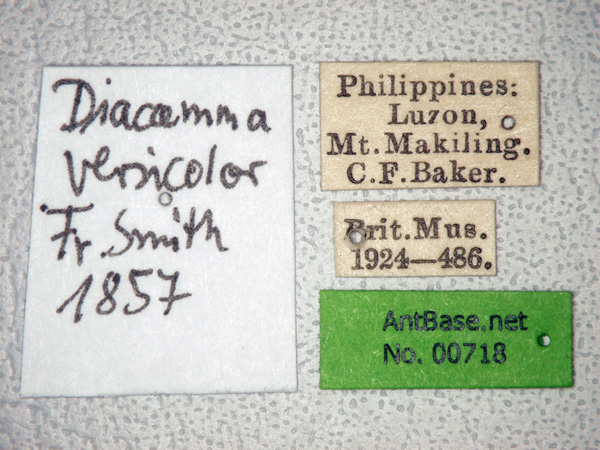 Diacamma
versicolor
Fr. Smith
1857
Philippines:
Luzon,
Mt. Makiling.
C.F. Baker.
Brit. Mus.
1924—486.
AntBase.net
No. 00718